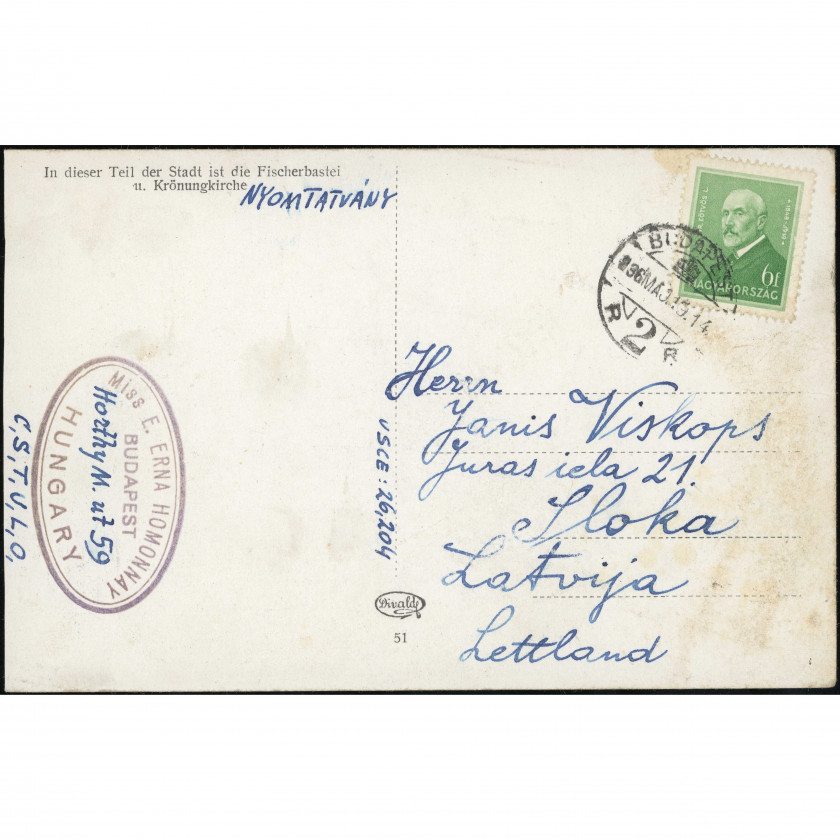 In dieser Teil der Stadt ist die Fischerbastei
u. Krönungkirche
NYOMTATVÁNY
EÖTVÖS L.
6f
MAGYARORSZÁG
BUDAPEST
2
R R
Herrn
Janis Viskops
Juras iela 21.
Sloka
Latvija
Lettland
USCE: 26,204
MISS E. ERNA HOMONNAY
BUDAPEST
Horthy M. út 59
HUNGARY
C,S,T,U,L,O,
Divald
51